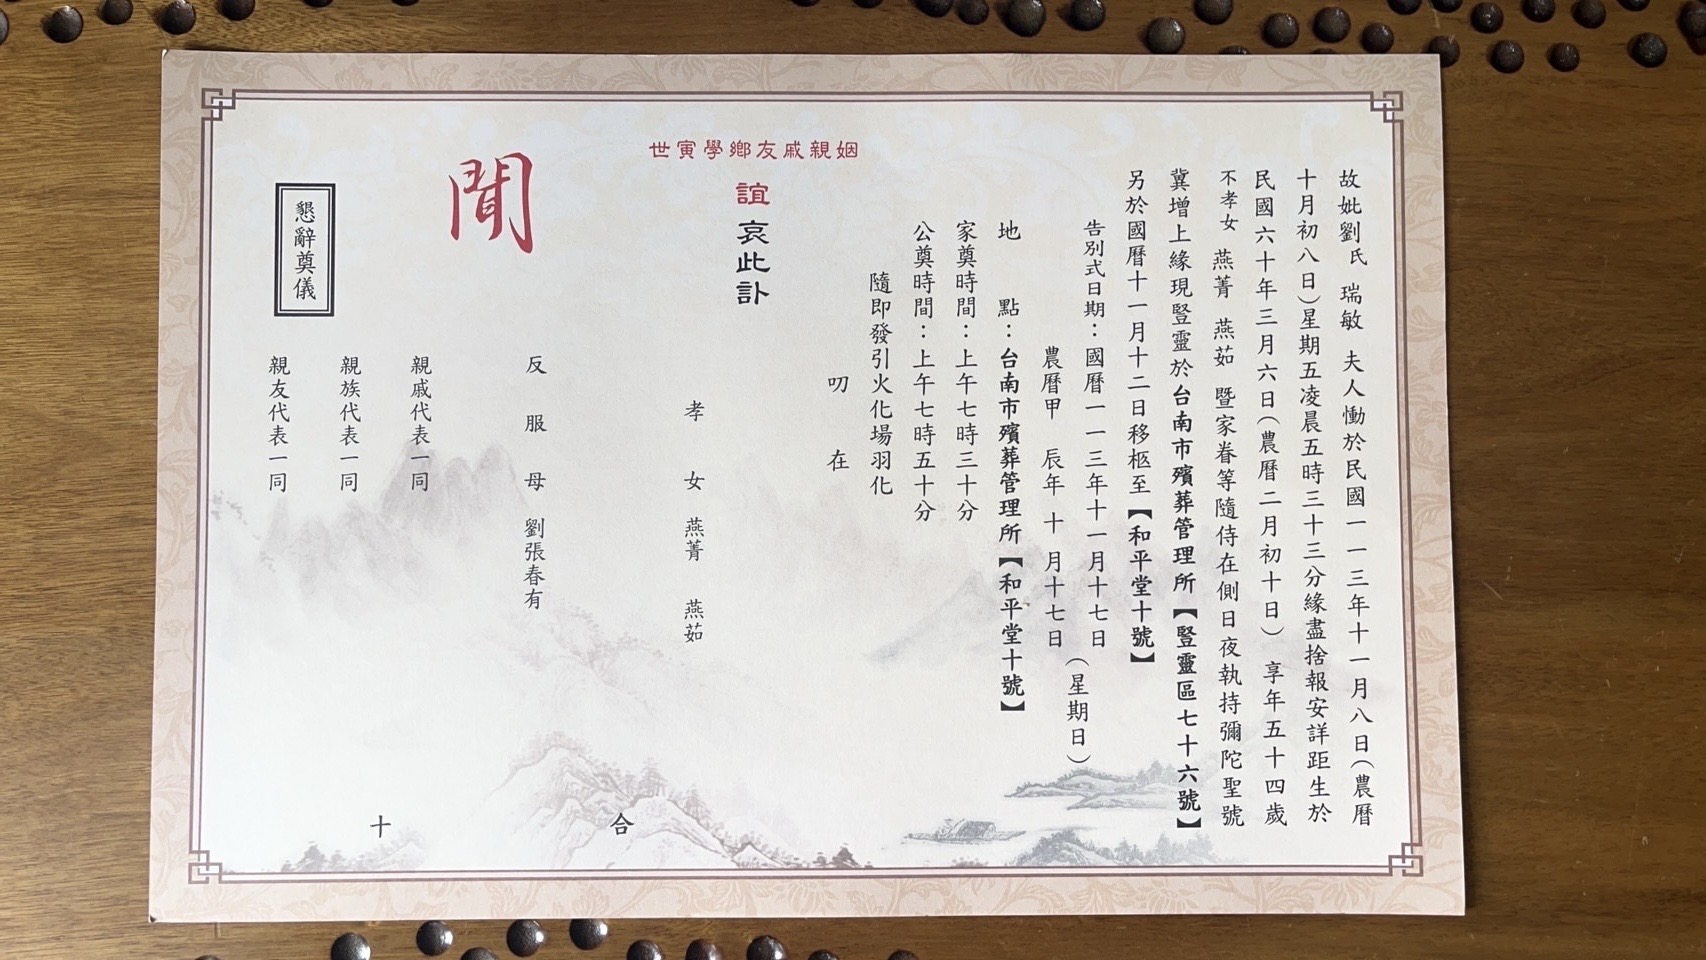 故妣劉氏 瑞敏 夫人慟於民國一一三年十一月八日(農曆
十月初八日)星期五凌晨五時三十三分緣盡捨報安詳距生於
民國六十年三月六日(農曆二月初十日) 享年五十四歲
不孝女 燕菁 燕茹 暨家眷等隨侍在側日夜執持彌陀聖號
冀增上緣現豎靈於台南市殯葬管理所【豎靈區七十六號】
另於國曆十一月十二日移柩至【和平堂十號】
告別式日期：國曆一一三年十一月十七日
農曆甲 辰年 十 月十七日
(星期日)
地 點：台南市殯葬管理所【和平堂十號】
家奠時間：上午七時三十分
公奠時間：上午七時五十分
隨即發引火化場羽化
叨 在
世寅學鄉友戚親姻
誼哀此訃
聞
孝 女 燕菁 燕茹
合
反 服 母 劉張春有
親戚代表一同
十
親族代表一同
親友代表一同
懇辭奠儀